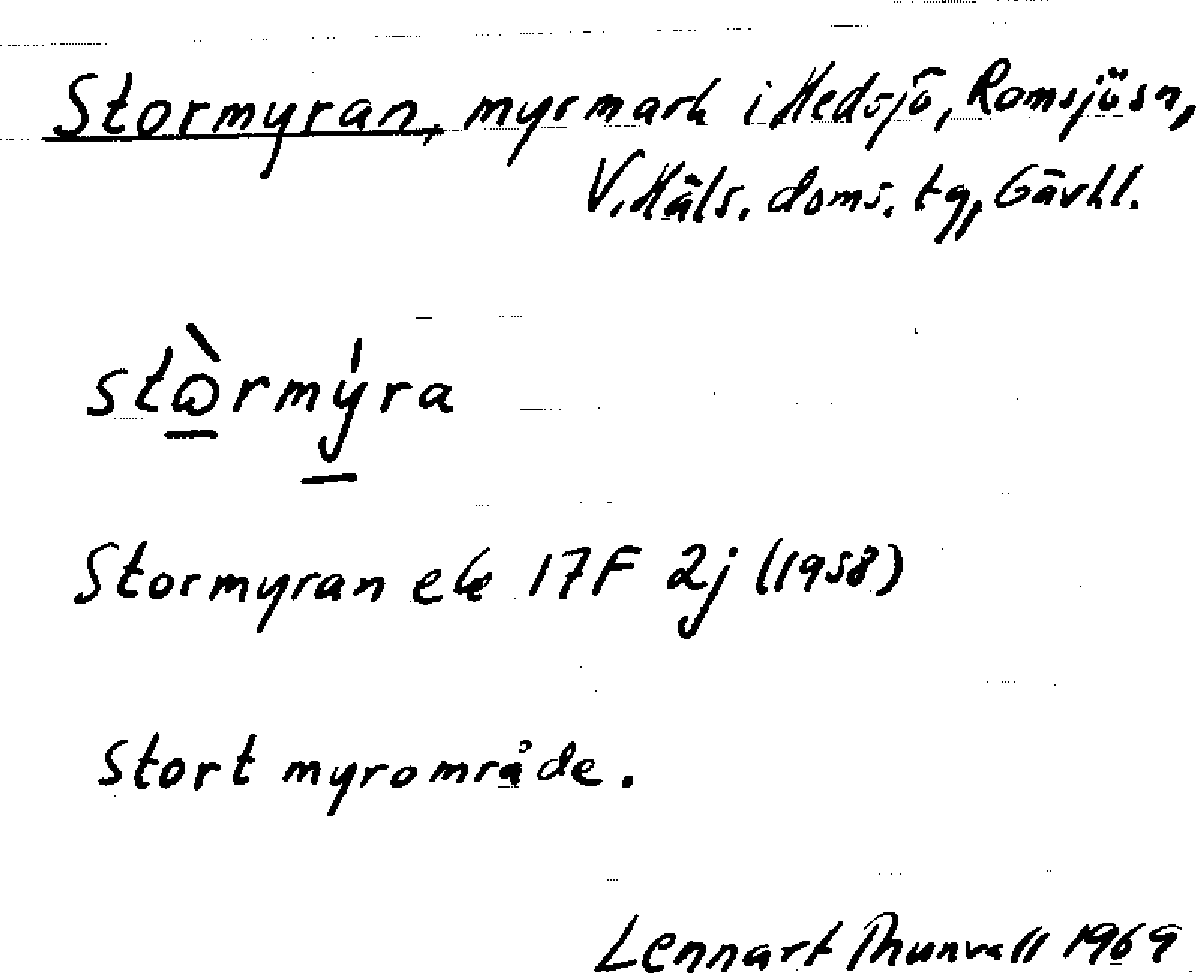 Stormyran, myrmark i Hedsjö, Ramsjö sn,
V. Häls. doms. tg, Gävll.
stòrmýra
Stormyran ek 17F 2j (1958)
Stort myrområde.
Lennart Thunvall 1969